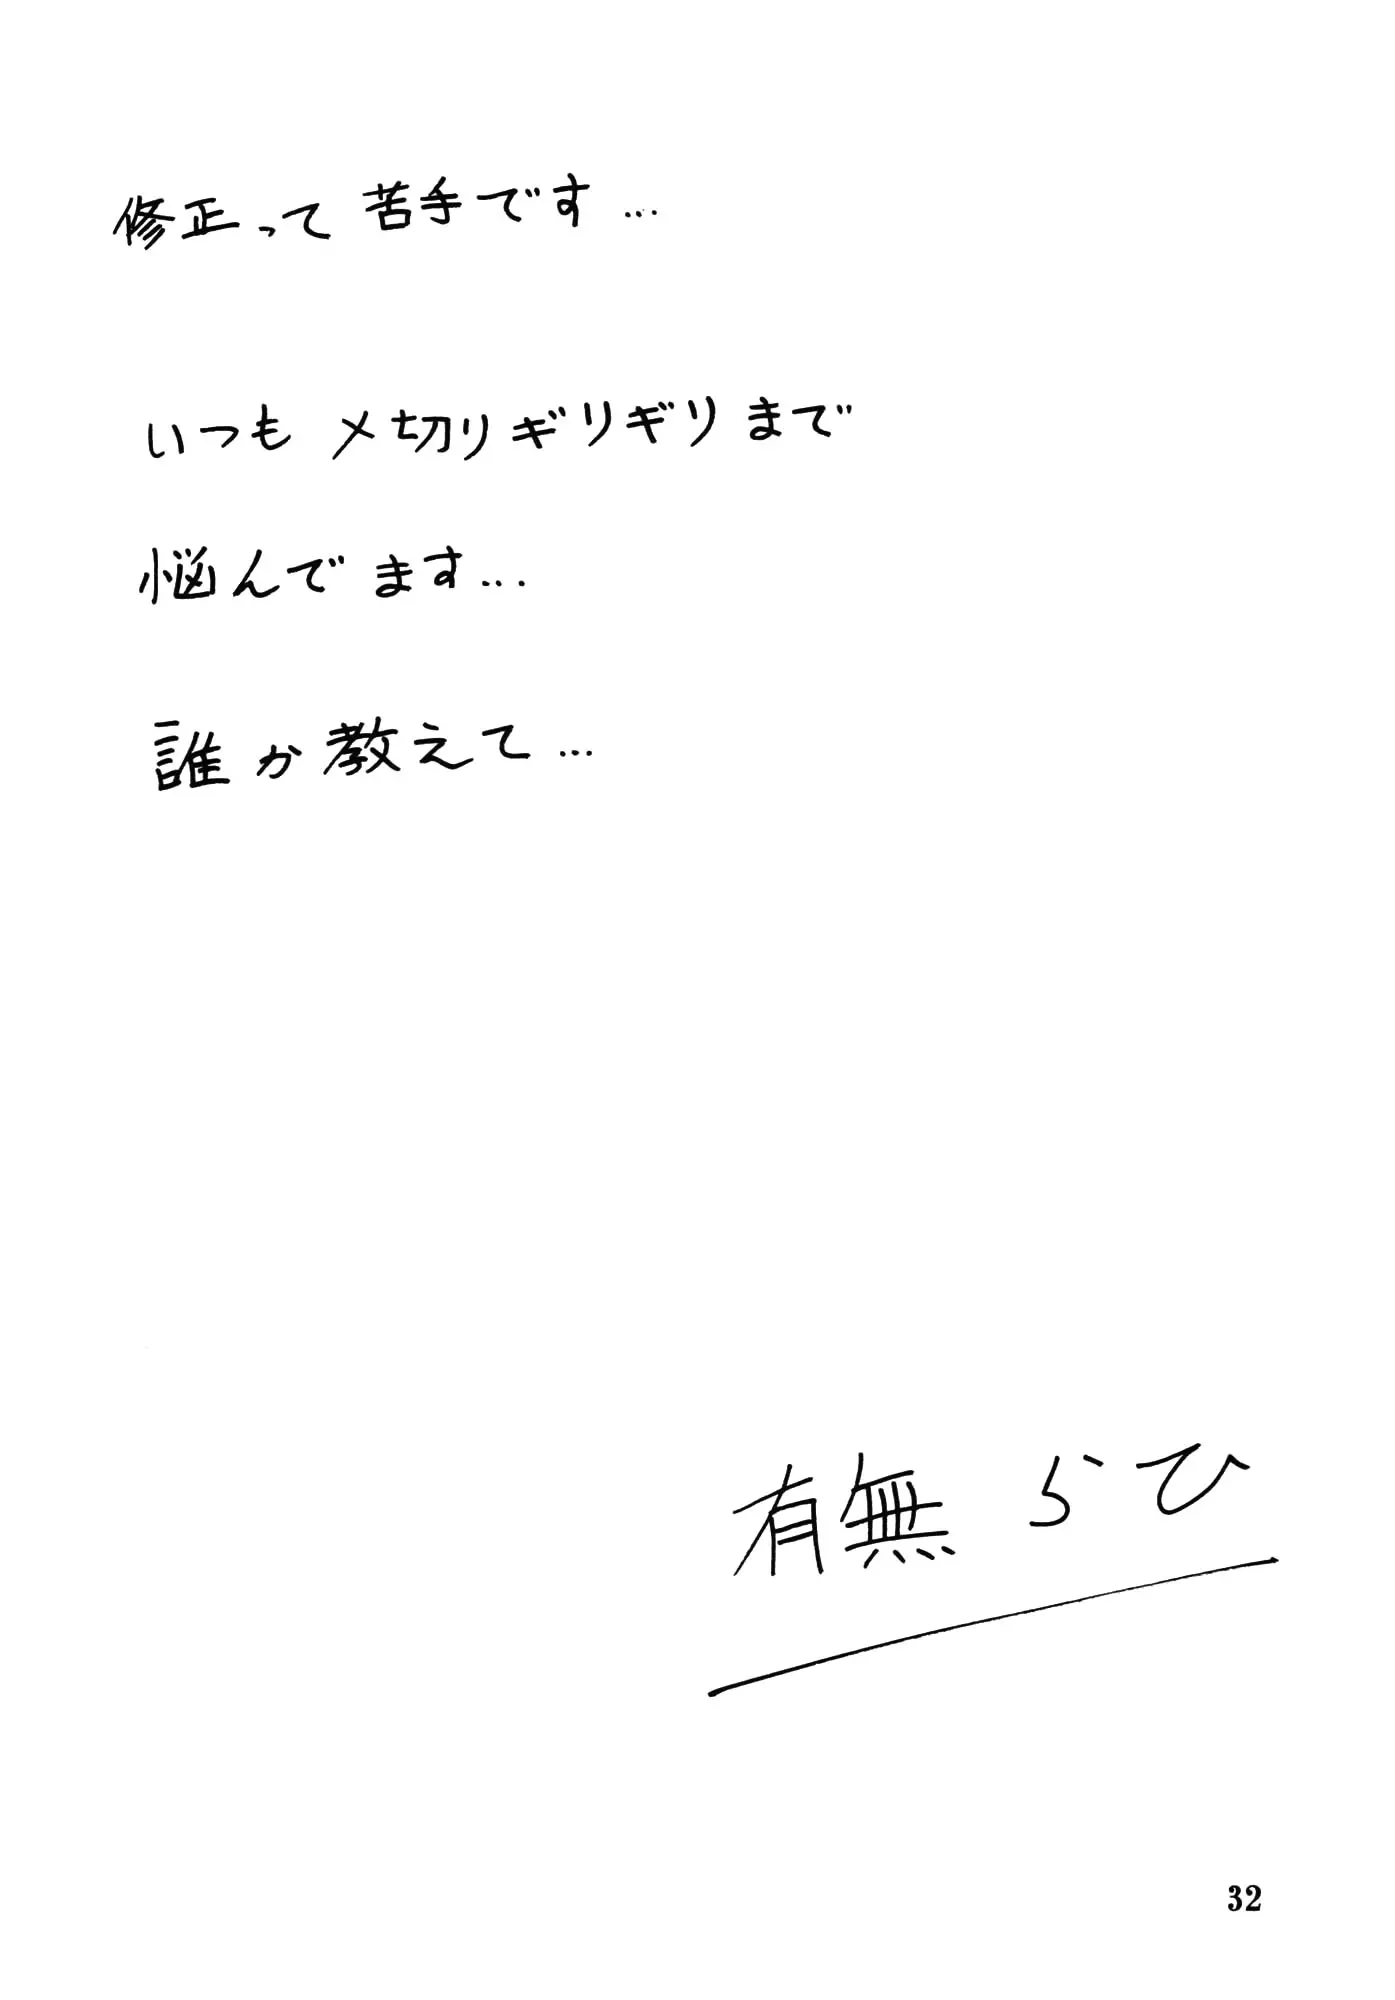 修正って苦手です...
いつも〆切りギリギリまで
悩んでます...
誰か教えて...
有無らひ
32